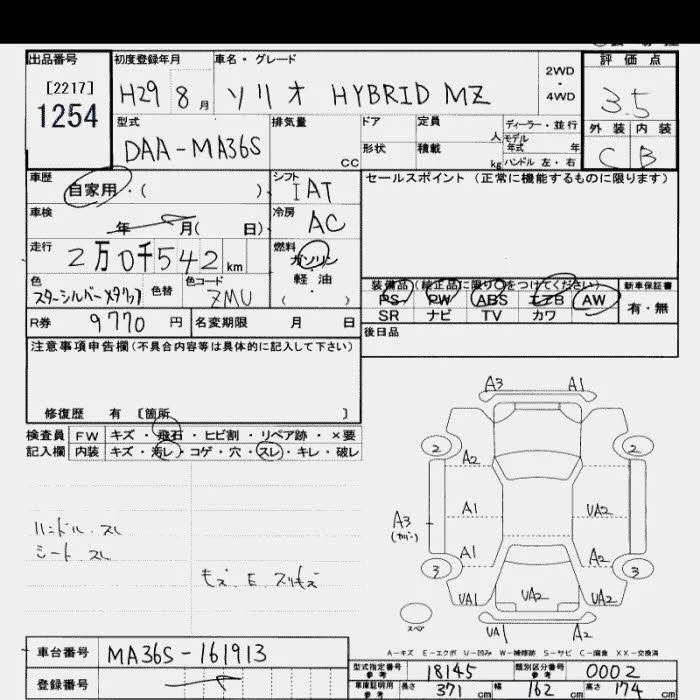 出品番号 初度登録年月 車名・グレード 2WD・4WD 評価点
[2217] H29 8月 ソリオ HYBRID MZ 3.5
1254
型式 排気量 ドア 定員 人 ディーラー・並行 外装 内装
DAA-MA36S CC 形状 積載 kg モデル年式 年 C B
ハンドル 左・右
車歴 シフト セールスポイント(正常に機能するものに限ります)
自家用・( ) IAT
車検 冷房
年 月( 日) AC
走行 燃料
2万0千542 km ガソリン
色 色替 色コード 軽油
スターシルバーメタリック ZMU ( )
装備品(純正品に限り○をつけてください) 新車保証書
PS PW ABS エアB AW 有・無
SR ナビ TV カワ
R券 9770円 名変期限 月 日 後日品
注意事項申告欄(不具合内容等は具体的に記入して下さい)
修復歴 有 [箇所 ]
検査員 FW キズ・飛石・ヒビ割・リペア跡・×要
記入欄 内装 キズ・汚レ・コゲ・穴・スレ・キレ・破レ
ハンドル スレ
シート スレ
A3 A1
2 2
A2
A1 UA2
A3
A1 A2
3 3
UA1 UA2 UA2
スペア
UA1 A2
A-キズ E-エクボ U-凹み W-補修跡 S-サビ C-腐食 XX-交換済
車台番号 MA36S-161913
登録番号
型式指定番号 参考 18145 類別区分番号 参考 0002
車庫証明用 参考 長さ 371cm 幅 162cm 高さ 174cm